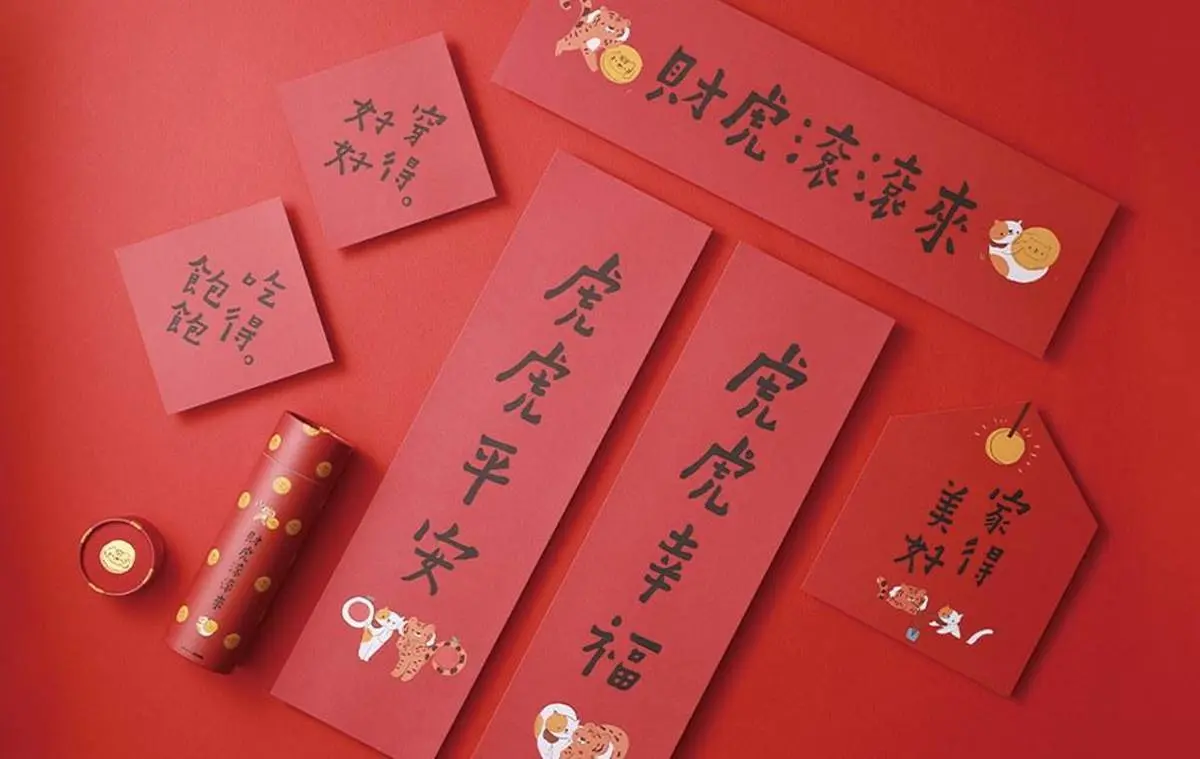 財虎滾滾來
穿得
好好。
吃得
飽飽。
虎虎平安
虎虎幸福
家得
美好
財虎滾滾來